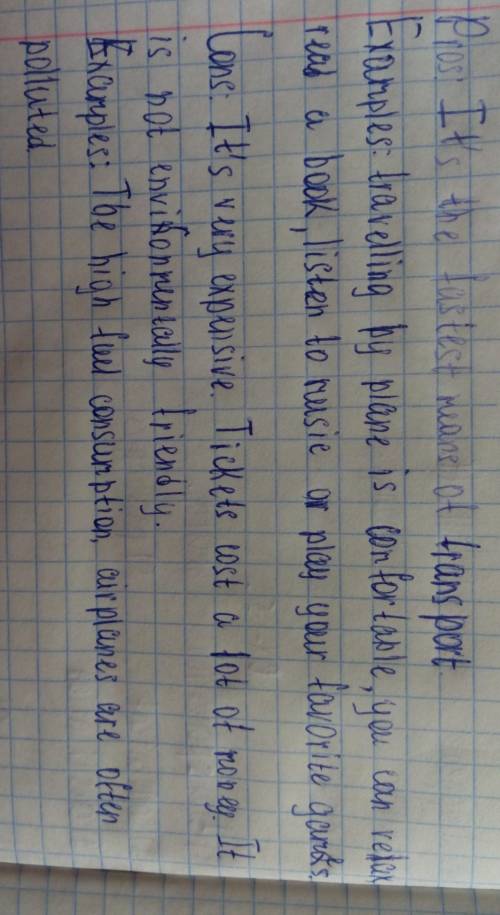 Pros: It's the fastest means of transport.
Examples: travelling by plane is comfortable, you can relax
read a book, listen to music or play your favorite games.
Cons: It's very expensive. Tickets cost a lot of money. It
is not environmentally friendly.
Examples: The high fuel consumption, airplanes are often
polluted